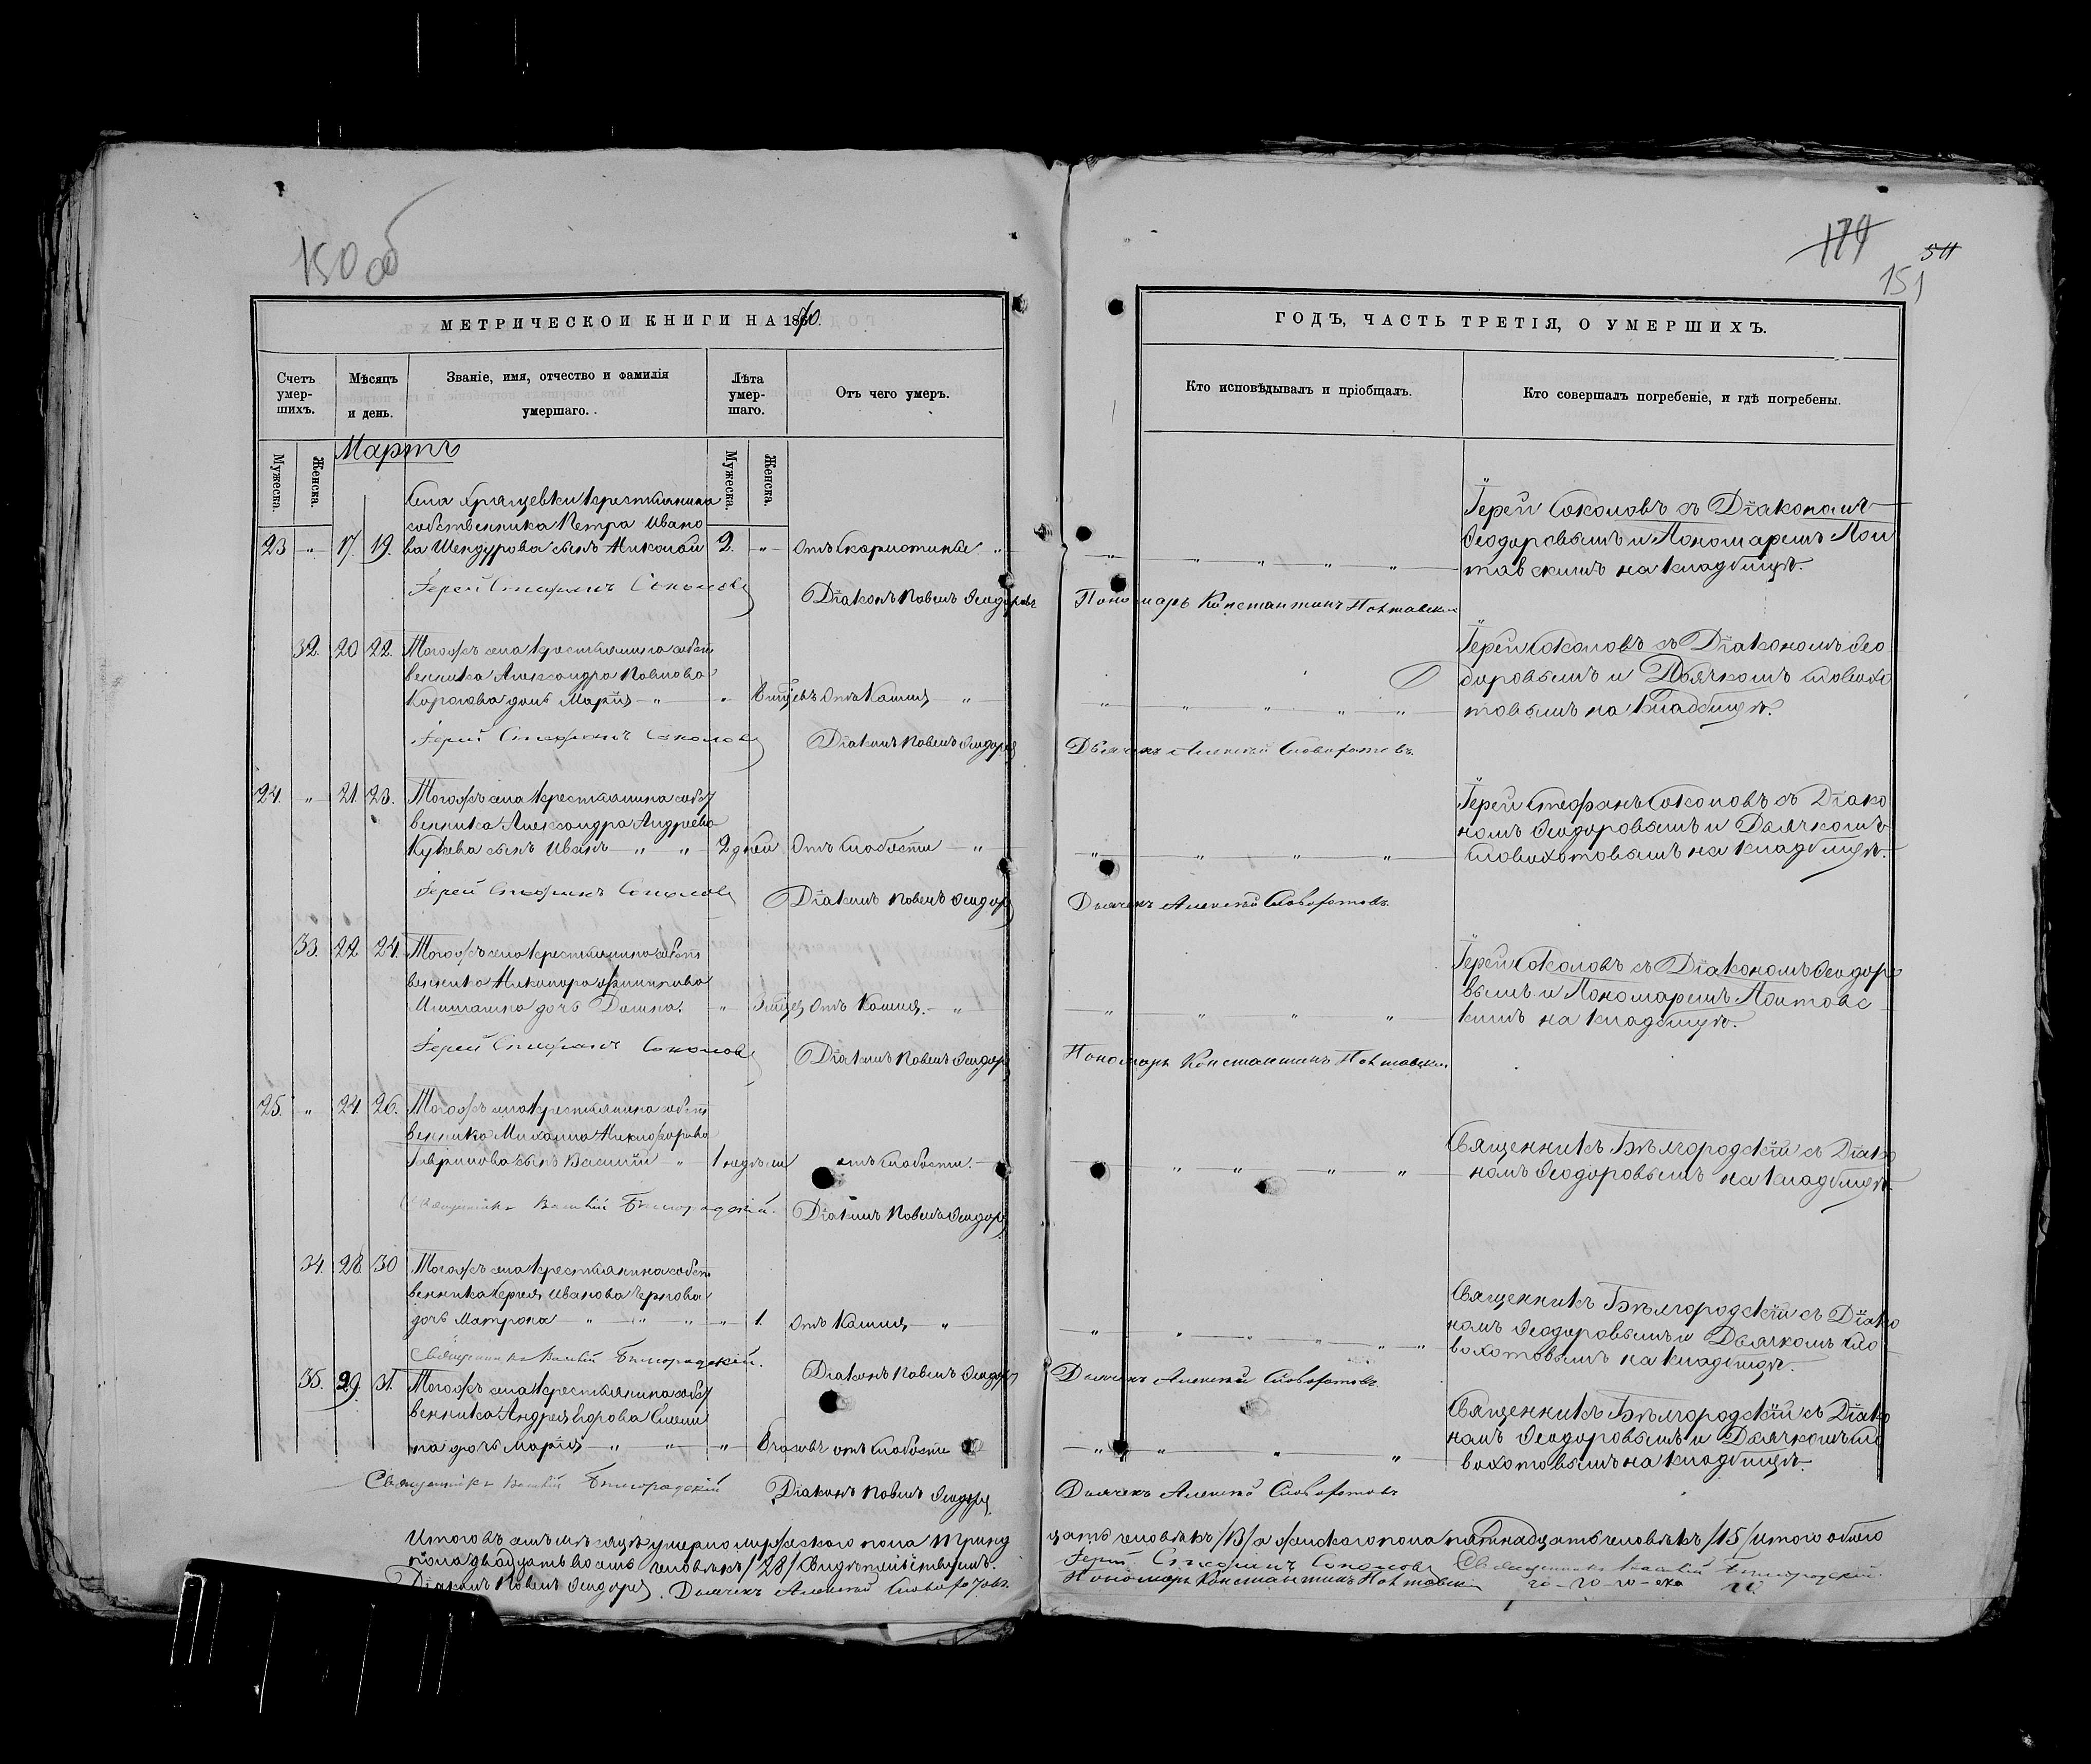 150 об
174
511
151
МЕТРИЧЕСКОЙ КНИГИ НА 1870.
Счетъ умер-шихъ.
Мѣсяцъ и день.
Званіе, имя, отчество и фамилія умершаго.
Лѣта умер-шаго.
Отъ чего умеръ.
Мужеска.
Женска.
Мужеска.
Женска.
Мартъ
Села Хрящевки крестьянина
собственника Петра Ивано
23 " 17. 19. ва Шендурова сынъ Николай 2. " отъ скарлотины "
Іерей Стефанъ Соколовъ Діаконъ Павелъ Феодоровъ
32. 20 22. Тогожъ села крестьянина собст
венника Александра Павлова
дочь Марія " " отъ Кашля "
Іерей Стефанъ Соколовъ Діаконъ Павелъ Феодоровъ
24. " 21. 23. Тогожъ села крестьянина собст
венника Александра Андреева
сынъ Иванъ " " 2 дней Отъ слабости "
Іерей Стефанъ Соколовъ Діаконъ Павелъ Феодоровъ
33. 22 24. Тогожъ села крестьянина собст
венника Никонора Филиппова
дочь " Отъ Кашля. "
Іерей Стефанъ Соколовъ Діаконъ Павелъ Феодоровъ
25. " 24. 26. Тогожъ села крестьянина собст
венника Михаила Никифорова
Гаврилова сынъ Василій " 1 недѣли отъ слабости.
Священникъ Василій Бѣлгородскій. Діаконъ Павелъ Феодоровъ
34. 28. 30 Тогожъ села крестьянина собст
венника Сергея Иванова Чернова
дочь Матрона " " " " 1. отъ Кашля "
Священникъ Василій Бѣлгородскій. Діаконъ Павелъ Феодоровъ
35. 29. 31. Тогожъ села крестьянина собст
венника Андрея Егорова
дочь Марія " " " часовъ отъ слабости
Священникъ Василій Бѣлгородскій Діаконъ Павелъ Феодоровъ
Итого въ семъ мѣсяцѣ умерло мужескаго пола трина
пола двадцать восемь человѣкъ /28/ Свидѣтельствуемъ.
Діаконъ Павелъ Феодоровъ. Дьячекъ Алексѣй Словохотовъ.
ГОДЪ, ЧАСТЬ ТРЕТІЯ, О УМЕРШИХЪ.
Кто исповѣдывалъ и пріобщалъ.
Кто совершалъ погребеніе, и гдѣ погребены.
Іерей Соколовъ съ Діакономъ
Феодоровымъ и Пономаремъ Пол
тавскимъ на кладбищѣ.
Пономарь Константинъ Полтавскій
Іерей Соколовъ съ Діакономъ Фео
доровымъ и Дьячкомъ Словохо
товымъ на кладбищѣ.
Дьячекъ Алексѣй Словохотовъ.
Іерей Стефанъ Соколовъ съ Діако
номъ Феодоровымъ и Дьячкомъ
Словохотовымъ на кладбищѣ.
Дьячекъ Алексѣй Словохотовъ.
Іерей Соколовъ съ Діакономъ Феодоро
вымъ и Пономаремъ Полтавс
кимъ на кладбищѣ.
Пономарь Константинъ Полтавскій
Священникъ Бѣлгородскій съ Діако
номъ Феодоровымъ на кладбищѣ.
Священникъ Бѣлгородскій съ Діако
номъ Феодоровымъ и Дьячкомъ Сло
вохотовымъ на кладбищѣ.
Дьячекъ Алексѣй Словохотовъ.
Священникъ Бѣлгородскій съ Діако
номъ Феодоровымъ и Дьячкомъ Сло
вохотовымъ на кладбищѣ.
Дьячекъ Алексѣй Словохотовъ
цать человѣкъ /13/ а женскаго пола пятнадцать человѣкъ /15/ итого обоего
Іерей Стефанъ Соколовъ Священникъ Василій Бѣлгородскій.
Пономарь Константинъ Полтавскій